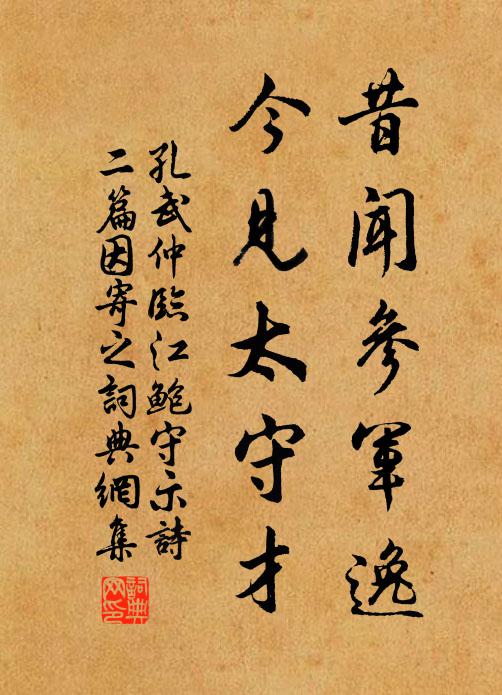 昔聞參軍逸
今見太守才
孔武仲臨江鮑守示詩
二篇因寄之詞典網集
詞典
网印